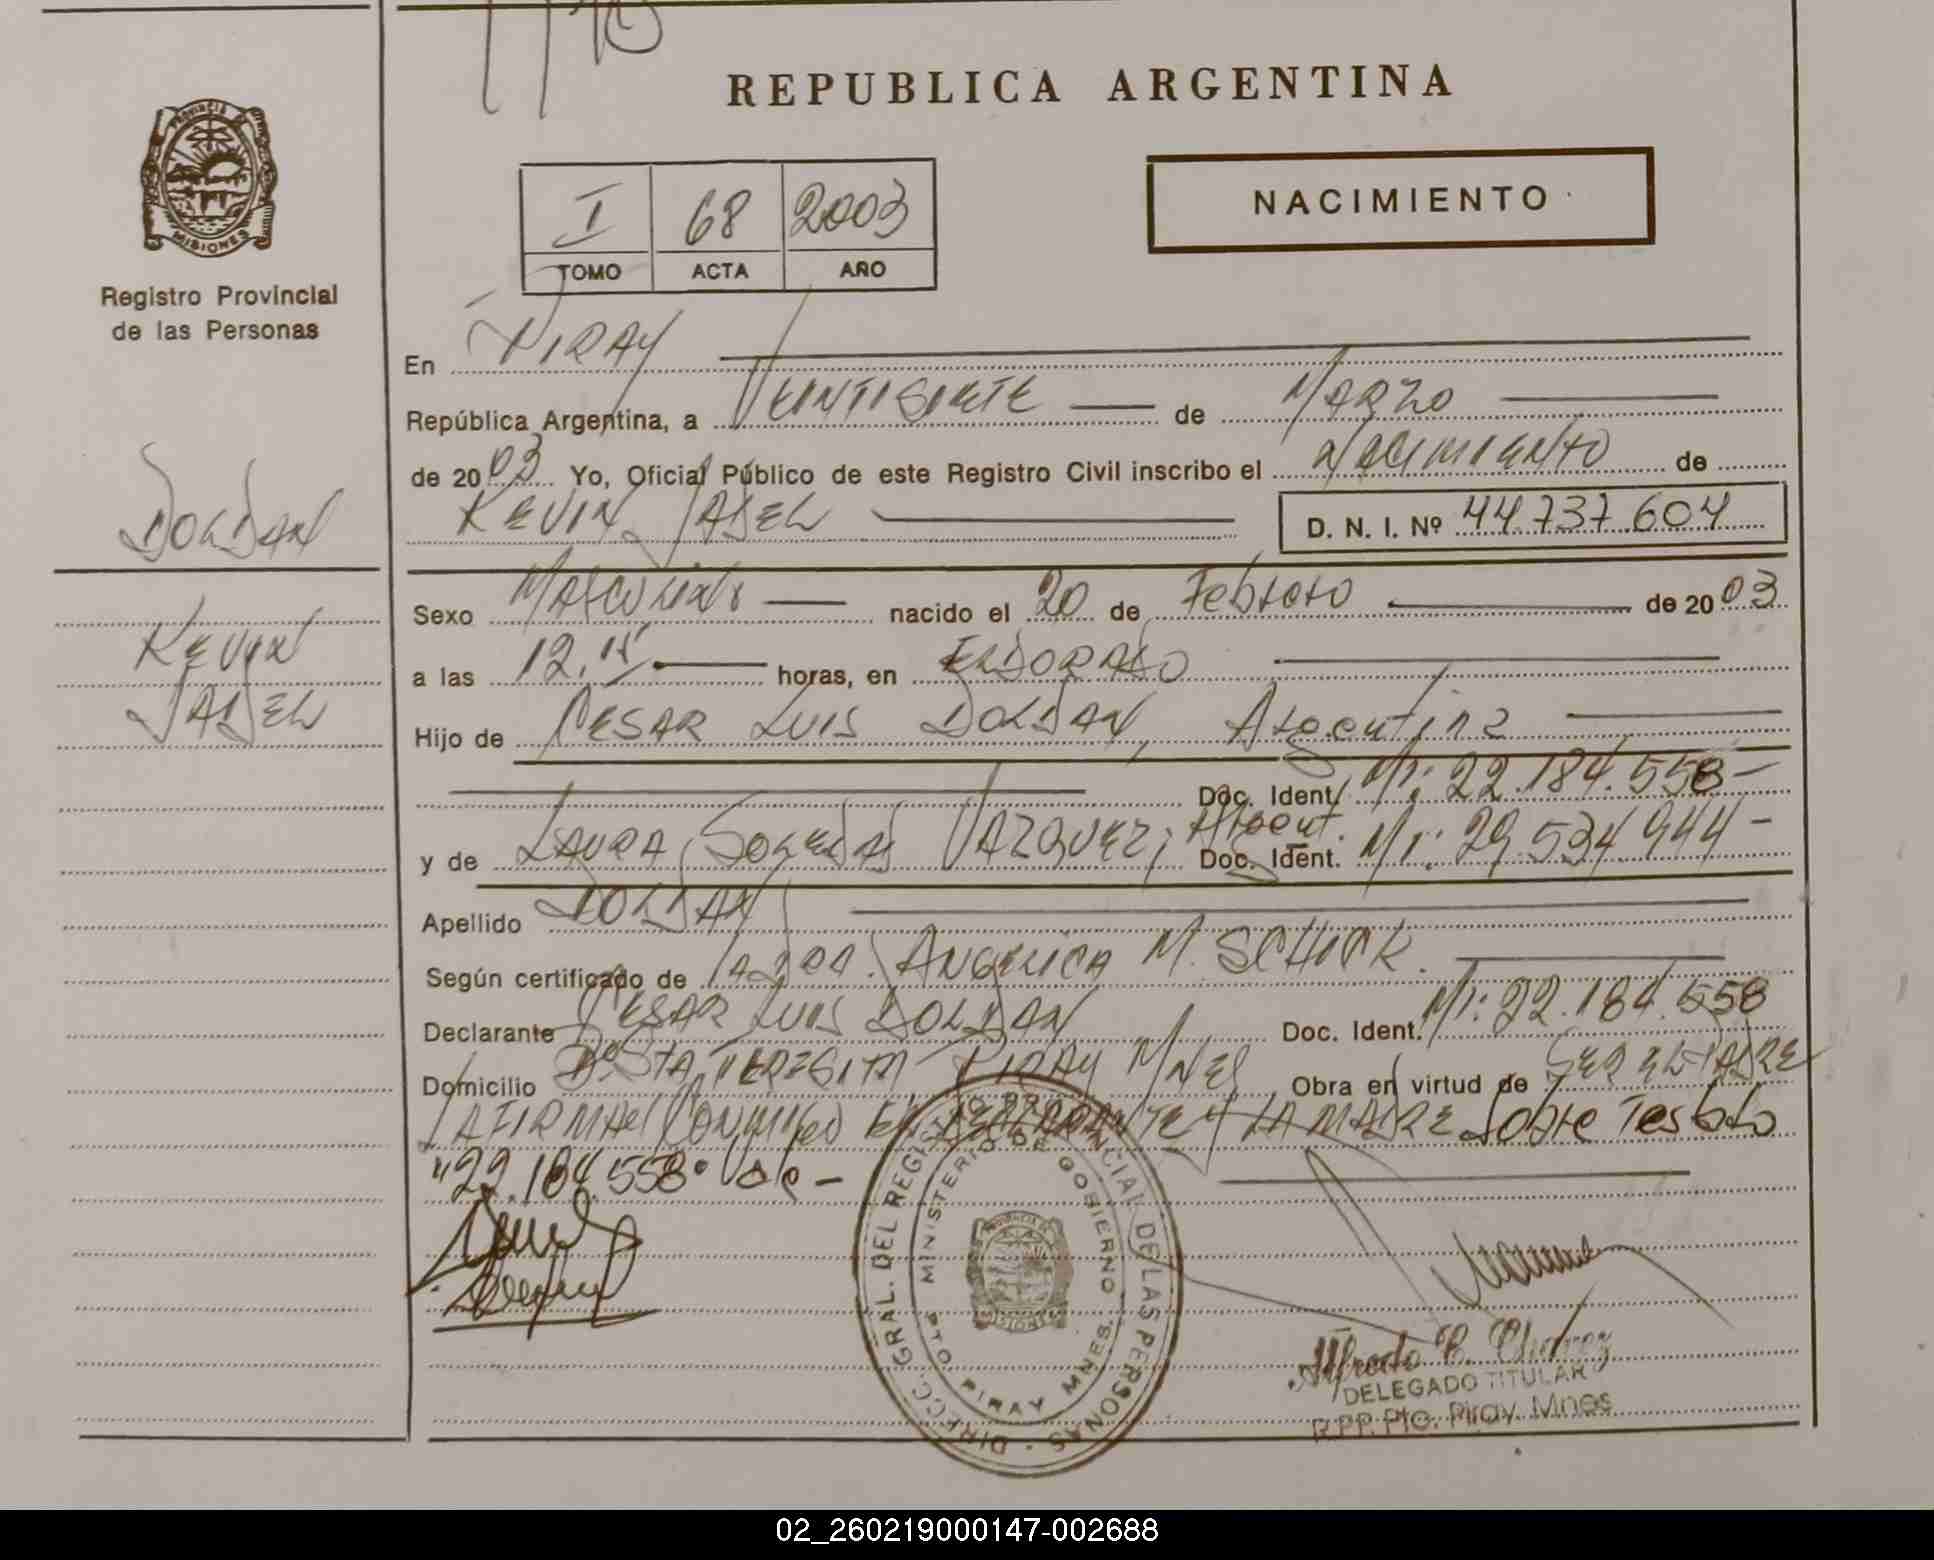 REPUBLICA ARGENTINA
PROVINCIA DE
MISIONES
Registro Provincial
de las Personas
I 68 2003
TOMO ACTA AÑO
NACIMIENTO
En PIRAY
República Argentina, a VEINTISIETE de MARZO
de 2003 Yo, Oficial Público de este Registro Civil inscribo el NACIMIENTO de
KEVIN JADEL
D. N. I. Nº 44.737.604
DOLDAN
KEVIN
JADEL
Sexo MASCULINO nacido el 20 de Febrero de 2003
a las 12.15 horas, en ELDORADO
Hijo de CESAR LUIS DOLDAN, Argentina
Doc. Ident. MI: 22.184.558-
y de LAURA SOLEDAD VAZQUEZ, Argent. Doc. Ident. MI: 29.534.944-
Apellido DOLDAN
Según certificado de LA DRA. ANGELICA M. SCHICK.
Declarante CESAR LUIS DOLDAN Doc. Ident. MI: 22.184.558
Domicilio Bº STA TERESITA PIRAY MNES Obra en virtud de SER EL PADRE
LA FIRMAN CONMIGO EL DECLARANTE Y LA MADRE Sobre Testado
"22.184.558" Vale-
DIRECC. GRAL. DEL REGISTRO PROVINCIAL DE LAS PERSONAS
MINISTERIO DE GOBIERNO
PTO PIRAY MNES.
PROVINCIA DE
MISIONES
Alfredo C. Chavez
DELEGADO TITULAR
R.P.P. Pto. Piray. Mnes
02_260219000147-002688